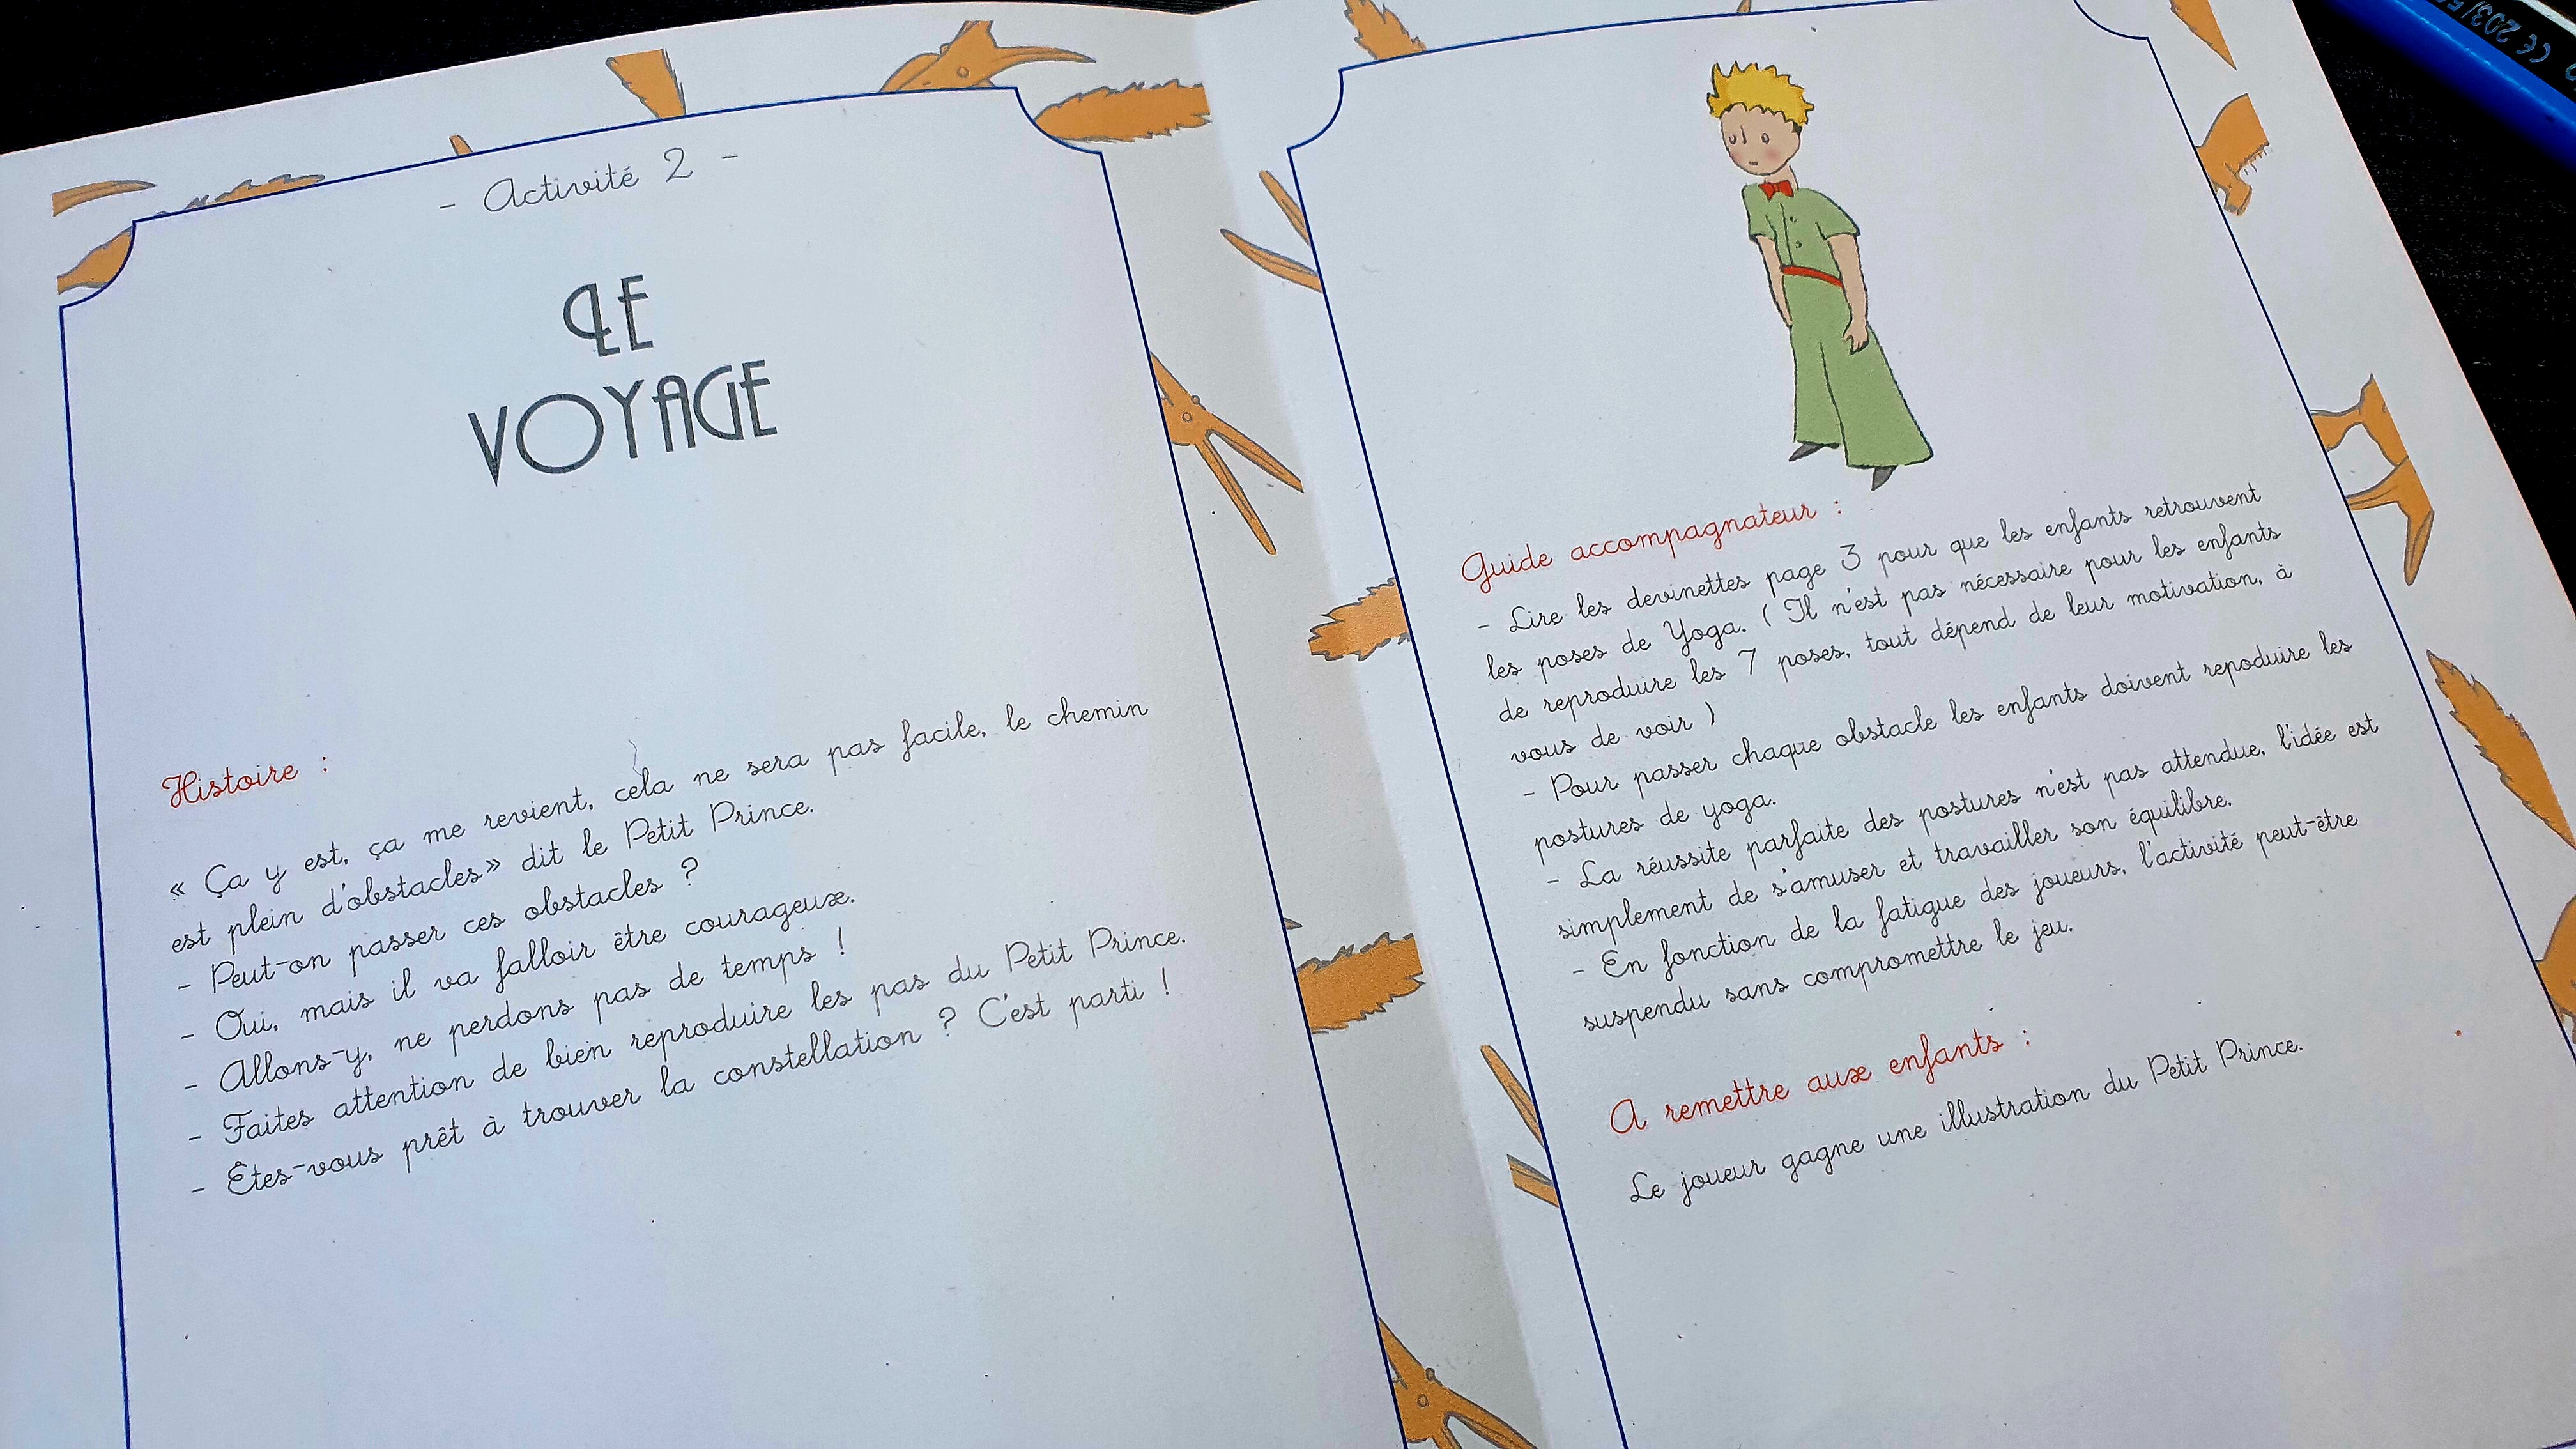 - Activité 2 -
LE
VOYAGE
Histoire :
« Ça y est, ça me revient, cela ne sera pas facile, le chemin
est plein d'obstacles» dit le Petit Prince.
- Peut-on passer ces obstacles ?
- Oui, mais il va falloir être courageux.
- Allons-y, ne perdons pas de temps !
- Faites attention de bien reproduire les pas du Petit Prince.
- Êtes-vous prêt à trouver la constellation ? C'est parti !
Guide accompagnateur :
- Lire les devinettes page 3 pour que les enfants retrouvent
les poses de Yoga. ( Il n'est pas nécessaire pour les enfants
de reproduire les 7 poses, tout dépend de leur motivation, à
vous de voir )
- Pour passer chaque obstacle les enfants doivent repoduire les
postures de yoga.
- La réussite parfaite des postures n'est pas attendue, l'idée est
simplement de s'amuser et travailler son équilibre.
- En fonction de la fatigue des joueurs, l'activité peut-être
suspendu sans compromettre le jeu.
A remettre aux enfants :
Le joueur gagne une illustration du Petit Prince.